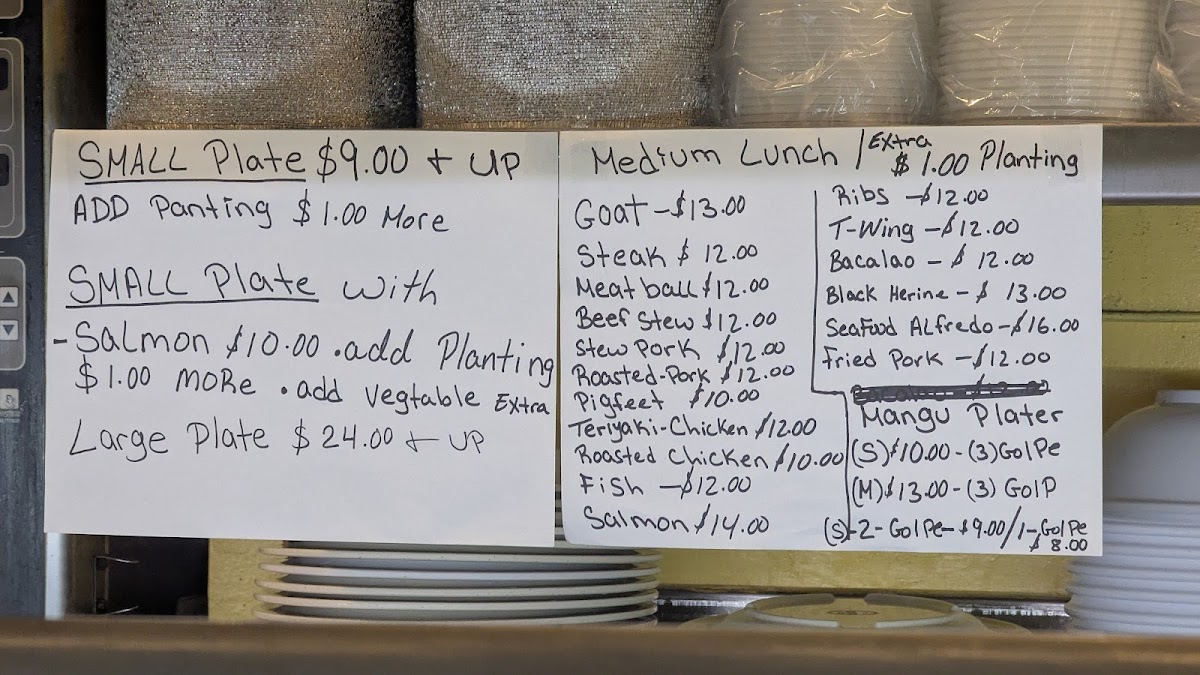 SMALL Plate $9.00 + UP
ADD Panting $1.00 More
SMALL Plate with
- Salmon $10.00 . add Planting
$1.00 MORe . add vegtable Extra
Large Plate $24.00 + UP
Medium Lunch / Extra $1.00 Planting
Goat - $13.00
Steak $ 12.00
Meatball $12.00
Beef Stew $12.00
Stew Pork $12.00
Roasted-Pork $12.00
Pigfeet $10.00
Teriyaki-Chicken $12.00
Roasted Chicken $10.00
Fish - $12.00
Salmon $14.00
Ribs - $12.00
T-Wing - $12.00
Bacalao - $ 12.00
Black Herine - $ 13.00
Seafood ALfredo - $16.00
Fried Pork - $12.00
Mangu Plater
(S) $10.00 - (3) GolPe
(M) $13.00 - (3) GolP
(S)-2-GolPe - $9.00/1-GolPe
$8.00